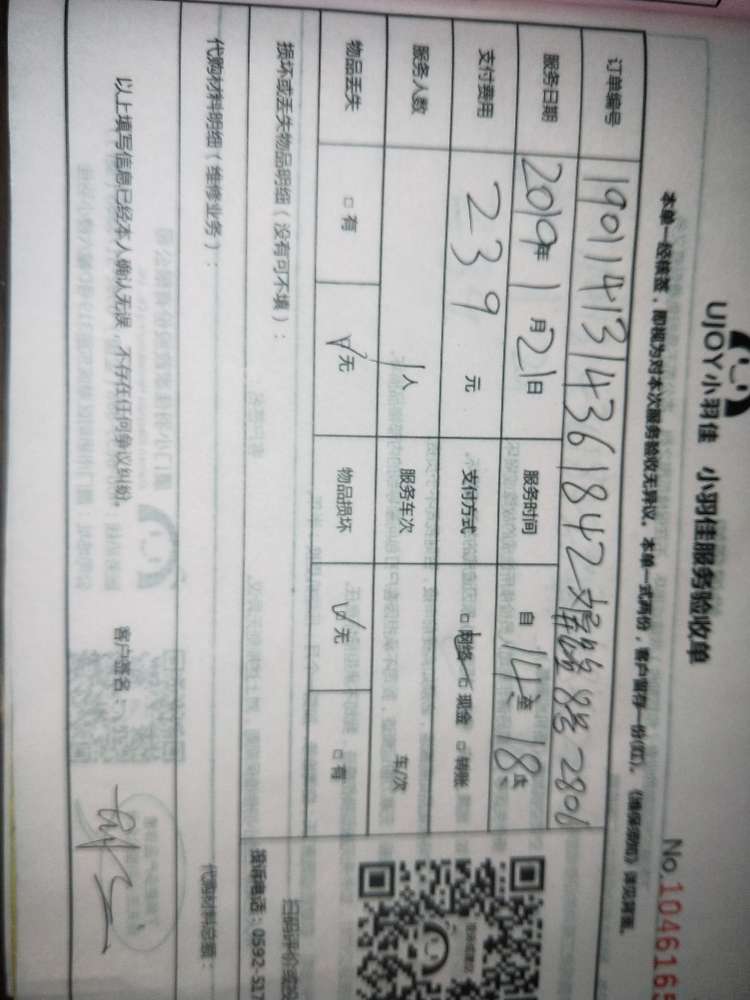 UJOY小羽佳 小羽佳服务验收单
No.1046165
本单一经核签，即视为对本次服务验收无异议。本单一式两份，客户留存一份(红)。
订单编号 1901141314361842 8号2806
服务日期 2019年1月21日 服务时间 自14至18点
支付费用 239元 支付方式 □网络 □现金 □转账
服务人数 1人 服务车次 车/次
物品丢失 □有 ☑无 物品损坏 ☑无 □有
损坏或丢失物品明细（没有可不填）：
代购材料明细（维修业务）： 代购材料总额：
以上填写信息已经本人确认无误，不存在任何争议纠纷。 客户签名：
扫码评价或投
投诉电话：0592-517